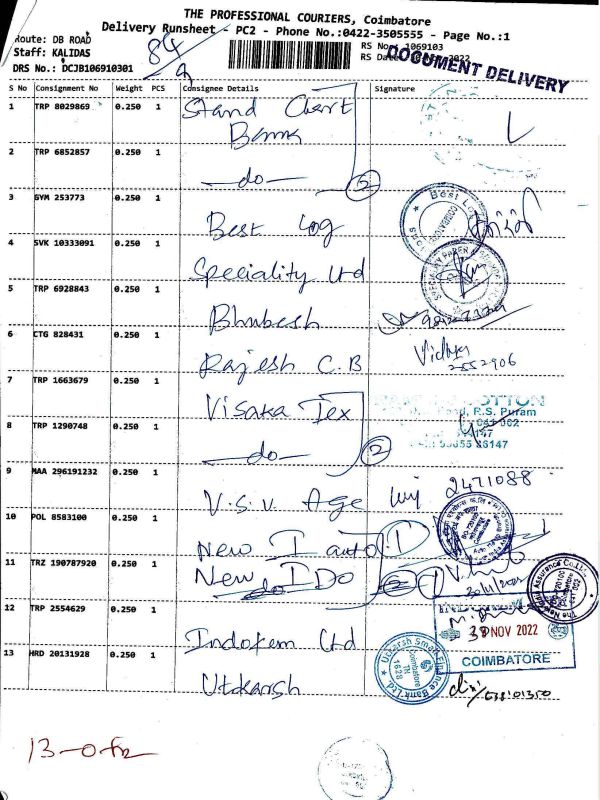 THE PROFESSIONAL COURIERS, Coimbatore
Delivery Runsheet - PC2 - Phone No.:0422-3505555 - Page No.:1
Route: DB ROAD
Staff: KALIDAS
DRS No.: DCJB106910301
84/9
RS No.: 1069103
RS Date
DOCUMENT DELIVERY
S No Consignment No Weight PCS Consignee Details Signature
1 TRP 8029869 0.250 1 Stand Chart Bank
2 TRP 6852857 0.250 1 —do— 2
3 GYM 253773 0.250 1 Best Log
4 SVK 10333091 0.250 1 Speciality Ltd
5 TRP 6928843 0.250 1 Bhubesh
6 CTG 828431 0.250 1 Rajesh C.B Vidhya 2552906
7 TRP 1663679 0.250 1 Visaka Tex
COTTON
R.S. Puram
8 TRP 1290748 0.250 1 —do— 2
9 MAA 296191232 0.250 1 V.S.V. Age 2471088
10 POL 8583100 0.250 1 New I auto 1
11 TRZ 190787920 0.250 1 New I Do 1
The New India Assurance Co.Ltd.
12 TRP 2554629 0.250 1 Indokem Ltd
NOV 2022
COIMBATORE
13 HRD 20131928 0.250 1 Utkarsh
Utkarsh Small Finance Bank Ltd.
Coimbatore
TN
1628
13-0-